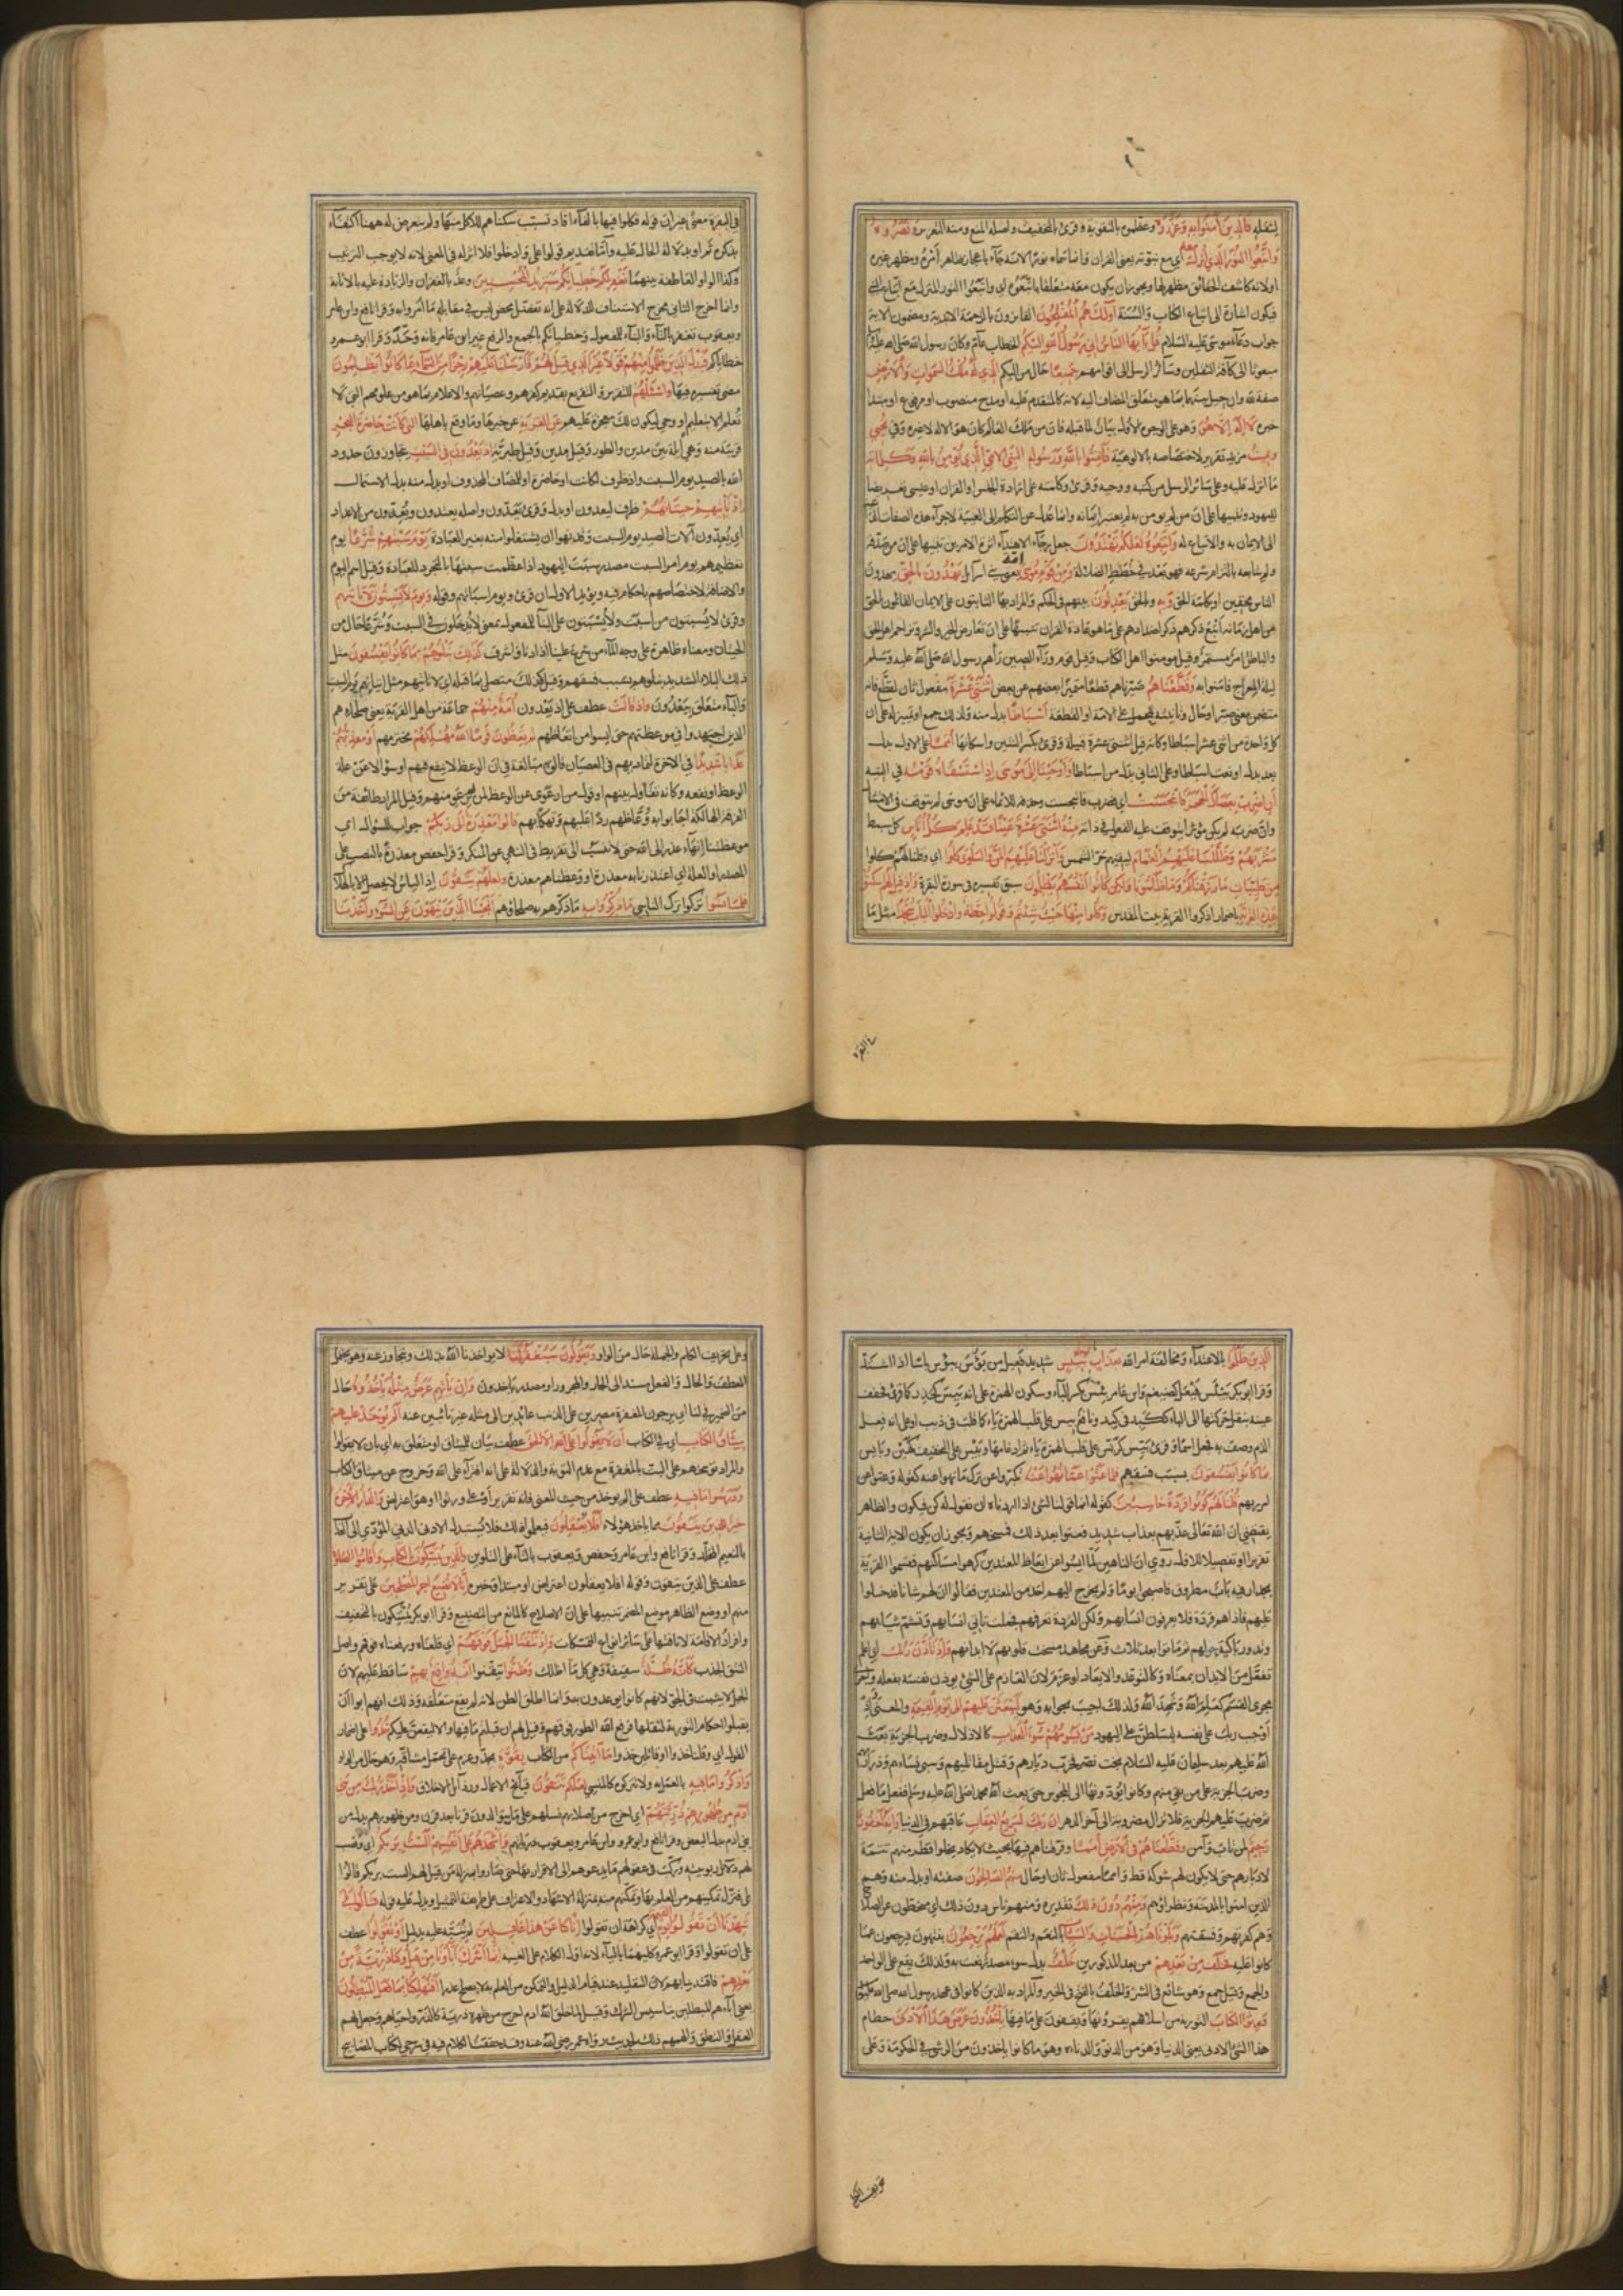 لثقله فالذين آمنوا به وعزروه وعظموه بالتقوية وقرئ بالتخفيف واصله المنع ومنه التعزير ونصروه
واتبعوا النور الذي أنزل معه أي مع نبوته يعني القران وانما سماه نورا لانه باعجازه ظاهر أمره ومظهر غيره
اولانه كاشف الحقائق مظهر لها ويجوز ان يكون معه متعلقا باتبعوا اي واتبعوا النور المنزل مع اتباع النبي
فيكون اشارة الى اتباع الكتاب والسنة أولئك هم المفلحون الفائزون بالرحمة الابدية ومضمون الاية
جواب دعاء موسى عليه السلام قل يا أيها الناس إني رسول الله إليكم الخطاب عام وكان رسول الله صلى الله عليه
مبعوثا الى كافة الثقلين وسائر الرسل الى اقوامهم جميعا حال من اليكم الذي له ملك السموات والأرض
صفة لله وان حيل بينهما بما هو متعلق المضاف اليه لانه كالمتقدم عليه او مدح منصوب او مرفوع او مبتدا
خبره لا إله إلا هو وهو على الوجوه الاول بيان لما قبله فان من ملك العالم كان هو الاله لا غيره وفي يحيي
ويميت مزيد تقرير لاختصاصه بالالوهية فآمنوا بالله ورسوله النبي الأمي الذي يؤمن بالله وكلماته
ما انزل عليه وعلى سائر الرسل من كتبه ووحيه وقرئ وكلمته على ارادة الجنس او القران او عيسى تعريضا
لليهود وتنبيها على ان من لم يؤمن به لم يعتبر ايمانه وانما عدل عن التكلم الى الغيبة لاجراء هذه الصفات الداعية
الى الايمان به والاتباع له واتبعوه لعلكم تهتدون جعل رجاء الاهتداء اثر الامرين تنبيها على ان من صدقه
ولم يتابعه بالتزام شرعه فهو بعد في خطط الضلالة ومن قوم موسى أمة يعني بني اسرائيل يهدون بالحق يهدون
الناس محقين او بكلمة الحق وبه وبالحق يعدلون بينهم في الحكم والمراد بها الثابتون على الايمان القائلون بالحق
من اهل زمانه أتبع ذكرهم ذكر اضدادهم على ما هو عادة القران تنبيها على ان تعارض الخير والشر وتزاحم اهل الحق
والباطل امر مستمر وقيل مومنوا اهل الكتاب وقيل قوم وراء الصين رآهم رسول الله صلى الله عليه وسلم
ليلة المعراج فامنوا به وقطعناهم صيرناهم قطعا متميزا بعضهم عن بعض اثنتي عشرة مفعول ثان لقطع فانه
متضمن معنى صير او حال وتانيثه للحمل على الامة او القطعة أسباطا بدل منه ولذلك جمع او تمييز له على ان
كل واحدة من اثنتي عشرة اسباط وكانه قيل اثنتي عشرة قبيلة وقرئ بكسر الشين واسكانها أمما على الاول بدل
بعد بدل او نعت اسباطا وعلى الثاني بدل من اسباطا وأوحينا إلى موسى إذ استسقاه قومه في التيه
أن اضرب بعصاك الحجر فانبجست اي فضرب فانبجست وحذفه للايماء على ان موسى لم يتوقف في الامتثال
وان ضربه لم يكن مؤثرا يتوقف عليه الفعل في ذاته منه اثنتا عشرة عينا قد علم كل أناس كل سبط
مشربهم وظللنا عليهم الغمام ليقيهم حر الشمس وأنزلنا عليهم المن والسلوى كلوا اي وقلنا لهم كلوا
من طيبات ما رزقناكم وما ظلمونا ولكن كانوا أنفسهم يظلمون سبق تفسيره في سورة البقرة وإذ قيل لهم اسكنوا
هذه القرية باضمار اذكر والقرية بيت المقدس وكلوا منها حيث شئتم وقولوا حطة وادخلوا الباب سجدا مثل ما
في البقرة
في البقرة معنى غير ان قوله فكلوا فيها بالفاء افاد تسبب سكناهم للاكل منها ولم يتعرض له ههنا اكتفاء
بذكره ثم او بدلالة الحال عليه واما تقديم قولوا على وادخلوا فلا اثر له في المعنى لانه لا يوجب الترتيب
وكذا الواو العاطفة بينهما نغفر لكم خطيئاتكم سنزيد المحسنين وعد بالغفران والزيادة عليه بالاثابة
وانما اخرج الثاني مخرج الاستئناف للدلالة على انه تفضل محض ليس في مقابلة ما أمروا به وقرا نافع وابن عامر
ويعقوب تغفر بالتاء والبناء للمفعول وخطيئاتكم بالجمع والرفع غير ابن عامر فانه وحد وقرا ابو عمرو
خطاياكم فبدل الذين ظلموا منهم قولا غير الذي قيل لهم فأرسلنا عليهم رجزا من السماء بما كانوا يظلمون
مضى تفسيره فيها واسألهم للتقرير والتقريع بقديم كفرهم وعصيانهم والاعلام بما هو من علومهم التي لا
تعلم الا بتعليم او وحي ليكون ذلك معجزة عليهم عن القرية عن خبرها وما وقع باهلها التي كانت حاضرة البحر
قريبة منه وهي أيلة بين مدين والطور وقيل مدين وقيل طبرية إذ يعدون في السبت يتجاوزون حدود
الله بالصيد يوم السبت واذ ظرف لكانت او حاضرة او للمضاف المحذوف او بدل منه بدل الاشتمال
إذ تأتيهم حيتانهم ظرف ليعدون او بدل وقرئ يعدون واصله يعتدون ويعدون من الاعداد
اي يعدون آلات الصيد يوم السبت وقد نهوا ان يشتغلوا فيه بغير العبادة يوم سبتهم شرعا يوم
تعظيمهم يوم امر السبت مصدر سبتت اليهود اذا عظمت سبتها بالتجرد للعبادة وقيل اسم لليوم
والاضافة لاختصاصهم باحكام فيه ويؤيد الاول ان قرئ ويوم اسباتهم وقوله ويوم لا يسبتون لا تأتيهم
وقرئ لا يسبتون من اسبت ولا يسبتون على البناء للمفعول بمعنى لا يدخلون في السبت وشرعا حال من
الحيتان ومعناه ظاهرة على وجه الماء من شرع علينا اذا دنا واشرف كذلك نبلوهم بما كانوا يفسقون مثل
ذلك البلاء الشديد نبلوهم بسبب فسقهم وقيل كذلك متصل بما قبله اي لا تاتيهم مثل اتيانهم يوم السبت
والباء متعلق بيعدون وإذ قالت عطف على اذ يعدون أمة منهم جماعة من اهل القرية يعني صلحاءهم
الذين اجتهدوا في موعظتهم حتى ايسوا من اتعاظهم لم تعظون قوما الله مهلكهم مخترمهم أو معذبهم
عذابا شديدا في الاخرة لتماديهم في العصيان قالوه مبالغة في ان الوعظ لا ينفع فيهم او سؤالا عن علة
الوعظ ونفعه وكانه تقاول بينهم او قول من ارعوى عن الوعظ لمن لم يرعو منهم وقيل المراد طائفة من
الفرقة الهالكة اجابوا به وعاظهم ردا عليهم وتهكما بهم قالوا معذرة إلى ربكم جواب للسؤال اي
موعظتنا إنهاء عذر الى الله حتى لا ننسب الى تفريط في النهي عن المنكر وقرا حفص معذرة بالنصب على
المصدر او العلة اي اعتذرنا به معذرة او وعظناهم معذرة ولعلهم يتقون إذ الياس لا يحصل الا بالهلاك
فلما نسوا تركوا ترك الناسي ما ذكروا به ما ذكرهم به صلحاؤهم أنجينا الذين ينهون عن السوء وأخذنا
الذين ظلموا بالاعتداء ومخالفة امر الله بعذاب بئيس شديد فعيل من بؤس يبؤس باسا اذا اشتد
وقرا ابو بكر بيئس على فيعل كضيغم وابن عامر بئس بكسر الباء وسكون الهمزة على انه بئس كحذر كما قرئ فخفف
عينه بنقل حركتها الى الباء ككبد في كبد ونافع بيس على قلب الهمزة ياء كما قلبت في ذيب او على انه فعل
الذم وصف به فجعل اسما وقرئ بيس كريس على قلب الهمزة ياء ثم ادغامها وبيس على التخفيف كهين وبائس
بما كانوا يفسقون بسبب فسقهم فلما عتوا عن ما نهوا عنه تكبروا عن ترك ما نهوا عنه كقوله وعتوا عن
امر ربهم قلنا لهم كونوا قردة خاسئين كقوله انما قولنا لشئ اذا اردناه ان نقول له كن فيكون والظاهر
يقتضي ان الله تعالى عذبهم بعذاب شديد فعتوا بعد ذلك فمسخهم ويجوز ان يكون الاية الثانية
تقريرا وتفصيلا للاولى روي ان الناهين لما ايسوا عن اتعاظ المعتدين كرهوا مساكنتهم فقسموا القرية
بجدار فيه باب مطروق فاصبحوا يوما ولم يخرج اليهم احد من المعتدين فقالوا ان لهم شانا فدخلوا
عليهم فاذا هم قردة فلم يعرفوا انسباءهم ولكن القردة تعرفهم فجعلت تاتي انسباءهم وتشم ثيابهم
وتدور باكية حولهم ثم ماتوا بعد ثلاث وعن مجاهد مسخت قلوبهم لا ابدانهم وإذ تأذن ربك اي اعلم
تفعل من الايذان بمعناه كالتوعد والايعاد او عزم لان العازم على الشئ يؤذن نفسه بفعله واجري
مجرى القسم كعلم الله وشهد الله ولذلك اجيب بجوابه وهو ليبعثن عليهم إلى يوم القيمة والمعنى واذ
أوجب ربك على نفسه ليسلطن على اليهود من يسومهم سوء العذاب كالاذلال وضرب الجزية بعث
الله عليهم بعد سليمان عليه السلام بخت نصر فخرب ديارهم وقتل مقاتليهم وسبى نساءهم وذراريهم
وضرب الجزية على من بقي منهم وكانوا يؤدونها الى المجوس حتى بعث الله محمدا صلى الله عليه وسلم ففعل ما فعل
ثم ضرب عليهم الجزية فلا تزال مضروبة الى آخر الدهر إن ربك لسريع العقاب عاقبهم في الدنيا وإنه لغفور
رحيم لمن تاب وآمن وقطعناهم في الأرض أمما وفرقناهم فيها بحيث لا يكاد يخلو قطر منهم تتمة
لادبارهم حتى لا يكون لهم شوكة قط وامما مفعول ثان او حال منهم الصالحون صفته او بدل منه وهم
الذين امنوا بالمدينة ونظراؤهم ومنهم دون ذلك تقديره ومنهم ناس دون ذلك اي منحطون عن الصلاح
وهم كفرتهم وفسقتهم وبلوناهم بالحسنات والسيئات بالنعم والنقم لعلهم يرجعون ينتهون فيرجعون عما
كانوا عليه فخلف من بعدهم من بعد المذكورين خلف بدل سوء مصدر نعت به ولذلك يقع على الواحد
والجمع وقيل جمع وهو شائع في الشر والخلف بالفتح في الخير والمراد به الذين كانوا في عصر رسول الله صلى الله عليه
ورثوا الكتاب التورية من اسلافهم يقرؤنها ويقفون على ما فيها يأخذون عرض هذا الأدنى حطام
هذا الشئ الادنى يعني الدنيا وهو من الدنو او الدناءة وهو ما كانوا ياخذون من الرشى في الحكومة وعلى
تحريف الكلم
وعلى تحريف الكلم والجملة حال من الواو ويقولون سيغفر لنا لا يؤاخذنا الله بذلك ويتجاوز عنه وهو يحتمل
العطف والحال والفعل مسند الى الجار والمجرور او مصدر ياخذون وإن يأتهم عرض مثله يأخذوه حال
من الضمير في لنا اي يرجون المغفرة مصرين على الذنب عائدين الى مثله غير تائبين عنه ألم يؤخذ عليهم
ميثاق الكتاب اي في الكتاب أن لا يقولوا على الله إلا الحق عطف بيان للميثاق او متعلق به اي بان لا يقولوا
والمراد توبيخهم على البت بالمغفرة مع عدم التوبة والدلالة على انه افتراء على الله وخروج عن ميثاق الكتاب
ودرسوا ما فيه عطف على الم يؤخذ من حيث المعنى فانه تقرير أو على ورثوا وهو اعتراض والدار الآخرة
خير للذين يتقون مما ياخذ هؤلاء أفلا يعقلون فيعلموا ذلك فلا يستبدلوا الادنى الدني المؤدي الى العقاب
بالنعيم المخلد وقرا نافع وابن عامر وحفص ويعقوب بالتاء على التلوين والذين يمسكون بالكتاب وأقاموا الصلوة
عطف على الذين يتقون وقوله افلا يعقلون اعتراض او مبتدا وخبره إنا لا نضيع أجر المصلحين على تقدير
منهم او وضع الظاهر موضع المضمر تنبيها على ان الاصلاح كالمانع من التضييع وقرا ابو بكر يمسكون بالتخفيف
وافراد الاقامة لانافتها على سائر انواع التمسكات وإذ نتقنا الجبل فوقهم اي قلعناه ورفعناه فوقهم واصل
النتق الجذب كأنه ظلة سقيفة وهي كل ما اظلك وظنوا تيقنوا أنه واقع بهم ساقط عليهم لان
الجبل لا يثبت في الجو لانهم كانوا يوعدون به وانما اطلق الظن لانه لم يقع متعلقه وذلك انهم ابوا ان
يقبلوا احكام التورية لثقلها فرفع الله الطور فوقهم وقيل لهم ان قبلتم ما فيها والا ليقعن عليكم خذوا على اضمار
القول اي وقلنا خذوا او قائلين خذوا ما آتيناكم من الكتاب بقوة بجد وعزم على تحمل مشاقه وهو حال من الواو
واذكروا ما فيه بالعمل به ولا تتركوه كالمنسي لعلكم تتقون قبائح الاعمال ورذائل الاخلاق وإذ أخذ ربك من بني
آدم من ظهورهم ذريتهم اي اخرج من اصلابهم نسلهم على ما يتوالدون قرنا بعد قرن ومن ظهورهم بدل من
بني ادم بدل البعض وقرا نافع وابو عمرو وابن عامر ويعقوب ذرياتهم وأشهدهم على أنفسهم ألست بربكم اي ونصب
لهم دلائل ربوبيته وركب في عقولهم ما يدعوهم الى الاقرار بها حتى صاروا بمنزلة من قيل لهم الست بربكم قالوا
بلى فنزل تمكينهم من العلم بها وتمكنهم منه بمنزلة الاشهاد والاعتراف على طريقة التمثيل ويدل عليه قوله قالوا بلى
شهدنا أن تقولوا يوم القيمة اي كراهة ان تقولوا إنا كنا عن هذا غافلين لم ننبه عليه بدليل أو تقولوا عطف
على ان تقولوا وقرا ابو عمرو كليهما بالياء لانه اول الكلام على الغيبة إنما أشرك آباؤنا من قبل وكنا ذرية من
بعدهم فاقتدينا بهم لان التقليد عند قيام الدليل والتمكن من العلم به لا يصلح عذرا أفتهلكنا بما فعل المبطلون
يعني آباءهم المبطلين بتاسيس الشرك وقيل لما خلق الله ادم اخرج من ظهره ذرية كالذر واحياهم وجعل لهم
العقل والنطق والهمهم ذلك لحديث رواه عمر رضي الله عنه وقد حققت الكلام فيه في شرحي لكتاب المصابيح